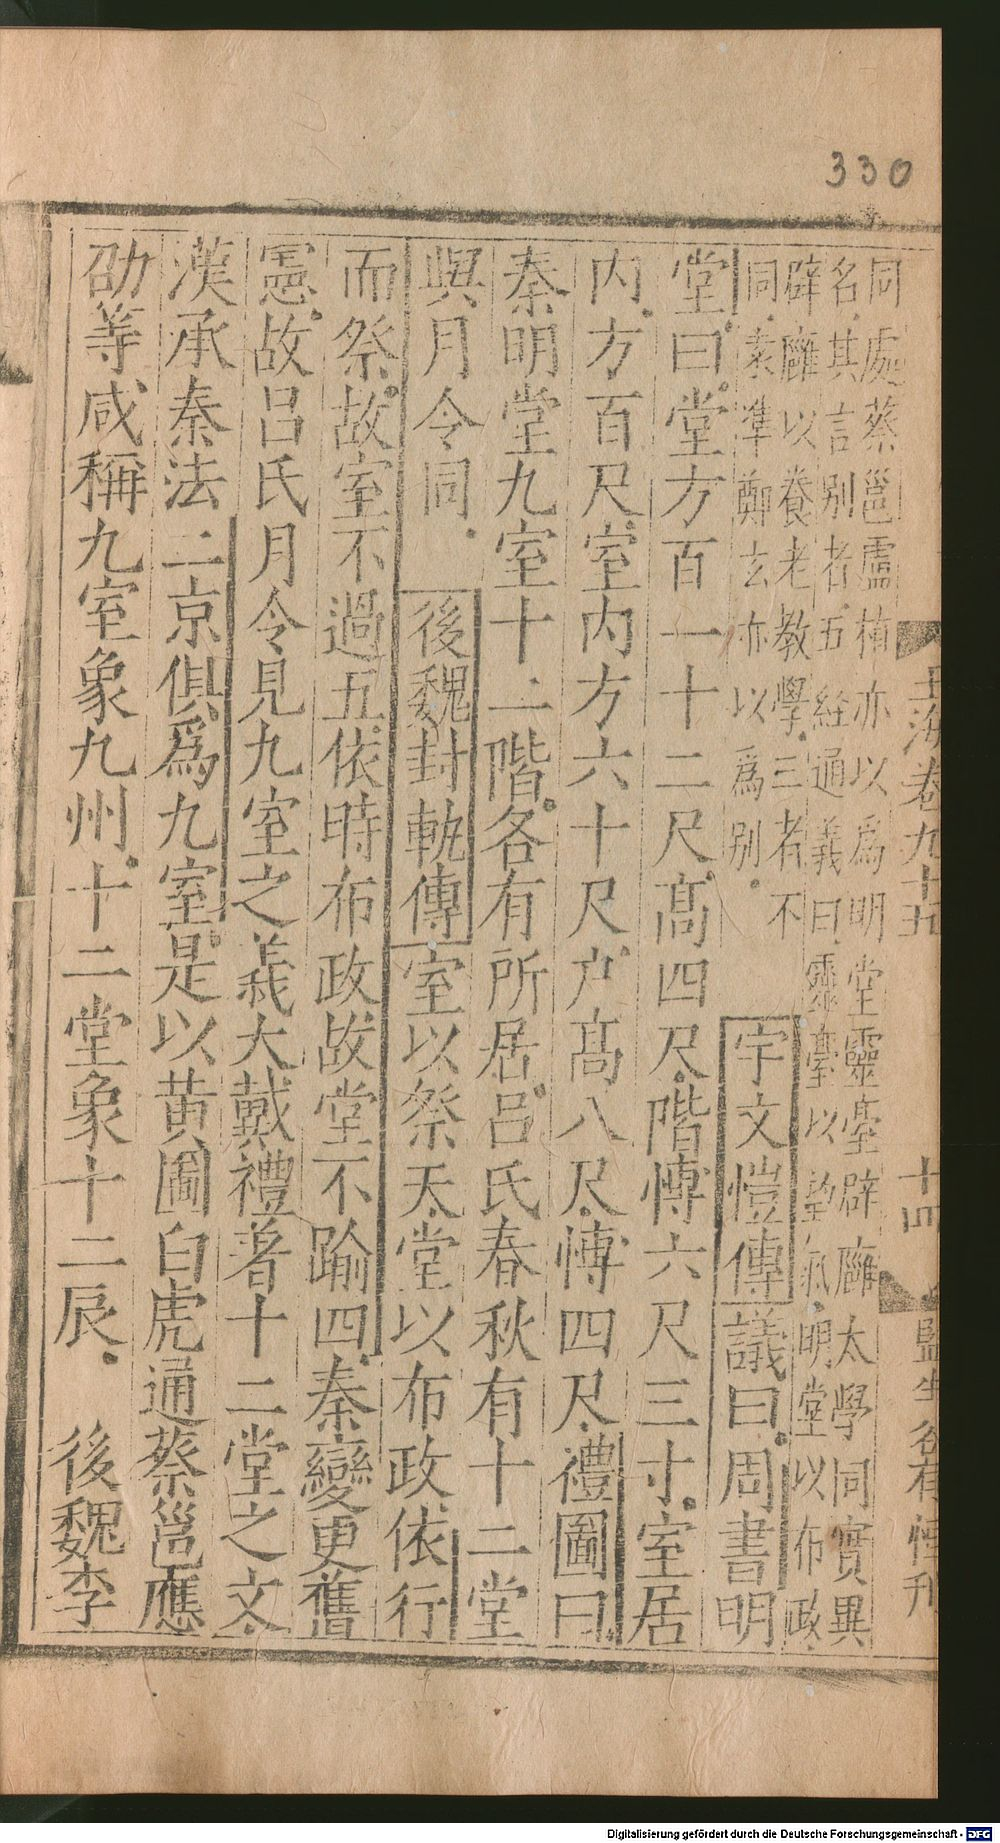 330
玉海卷九十五
十四
監生谷有惲刊
同處蔡邕盧植亦以爲明堂靈臺辟廱太學同實異
名其言別者五経通義曰靈臺以望氣明堂以布政
辟廱以養老教學三者不
同袁準鄭玄亦以爲別 宇文愷傳議曰周書明
堂曰堂方百一十二尺高四尺階博六尺三寸室居
内方百尺室内方六十尺户高八尺博四尺禮圖曰
秦明堂九室十二階各有所居吕氏春秋有十二堂
與月令同 後魏封軌傳室以祭天堂以布政依行
而祭故室不過五依時布政故堂不踰四秦變更舊
憲故吕氏月令見九室之義大戴禮著十二堂之文
漢承秦法二京俱爲九室是以黄圖白虎通蔡邕應
劭等咸稱九室象九州十二堂象十二辰 後魏李
Digitalisierung gefördert durch die Deutsche Forschungsgemeinschaft - DFG